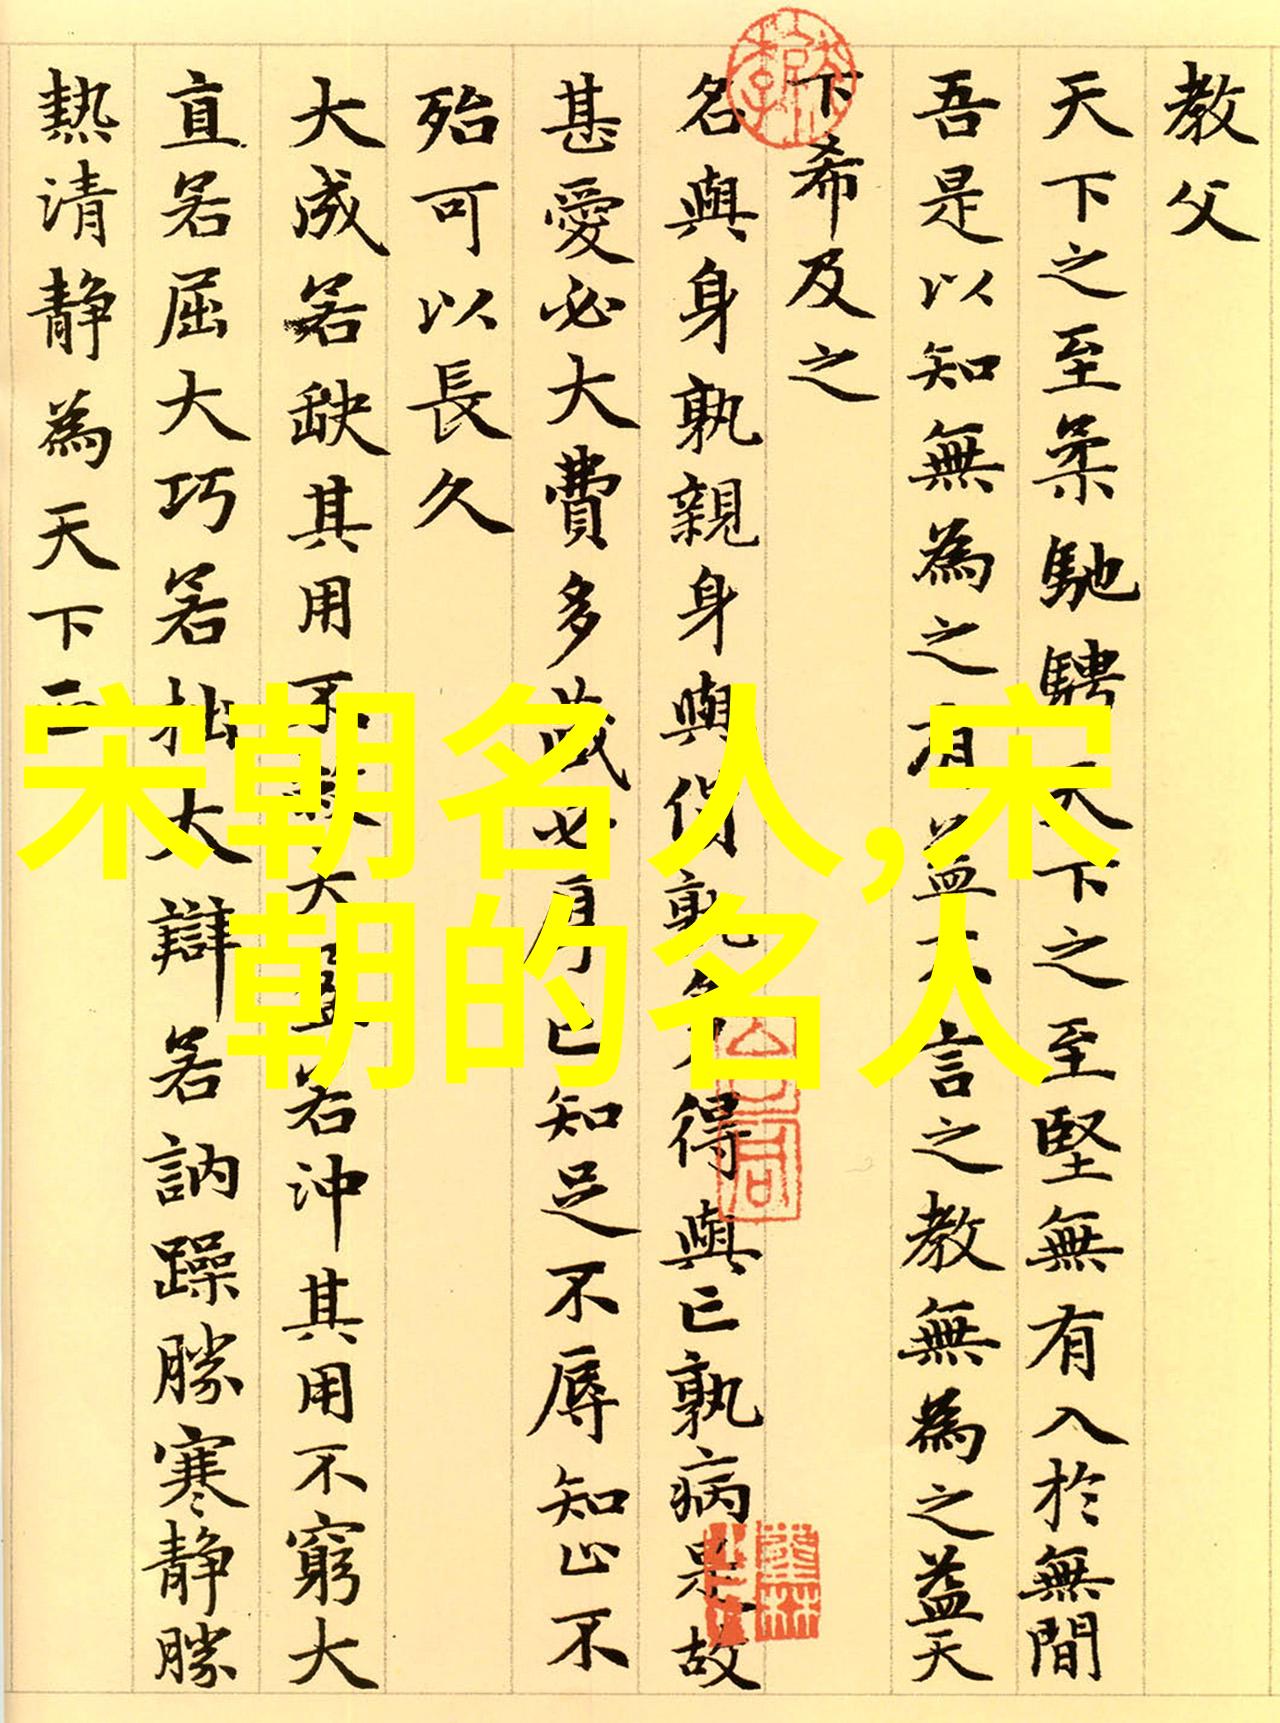 教父
天下之至柔馳騁天下之至堅無有入於無間
吾是以知無為之有益不言之教無為之益天
下希及之
名與身孰親身與貨孰多得與亡孰病是故
甚愛必大費多藏必厚亡知足不辱知止不
殆可以長久
大成若缺其用不敝大盈若沖其用不窮大
直若屈大巧若拙大辯若訥躁勝寒靜勝
熱清靜為天下正
宋朝名人,宋
朝的名人